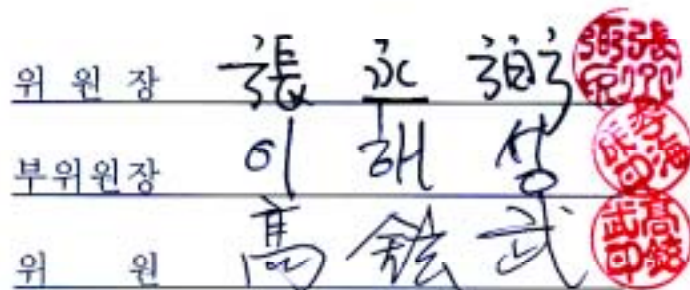 위 원 장 張 丞 弼
부위원장 이 해 성
위 원 高 鉉 武